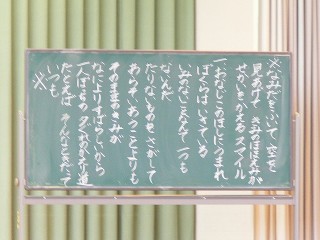 ※なみだをふいて 空を
見あげて きみのほほえみが
せかいをかえる スマイル
一、おなじこのほしにうまれ
ぼくらはいきている
いみないことなんて一つも
ないんだ
たりないものを さがして
あらそいあうことよりも
そのままのきみが
なによりすばらしいから
一人ぼっちの夕ぐれのかえり道
たとえば そんなときだって
いつも
※